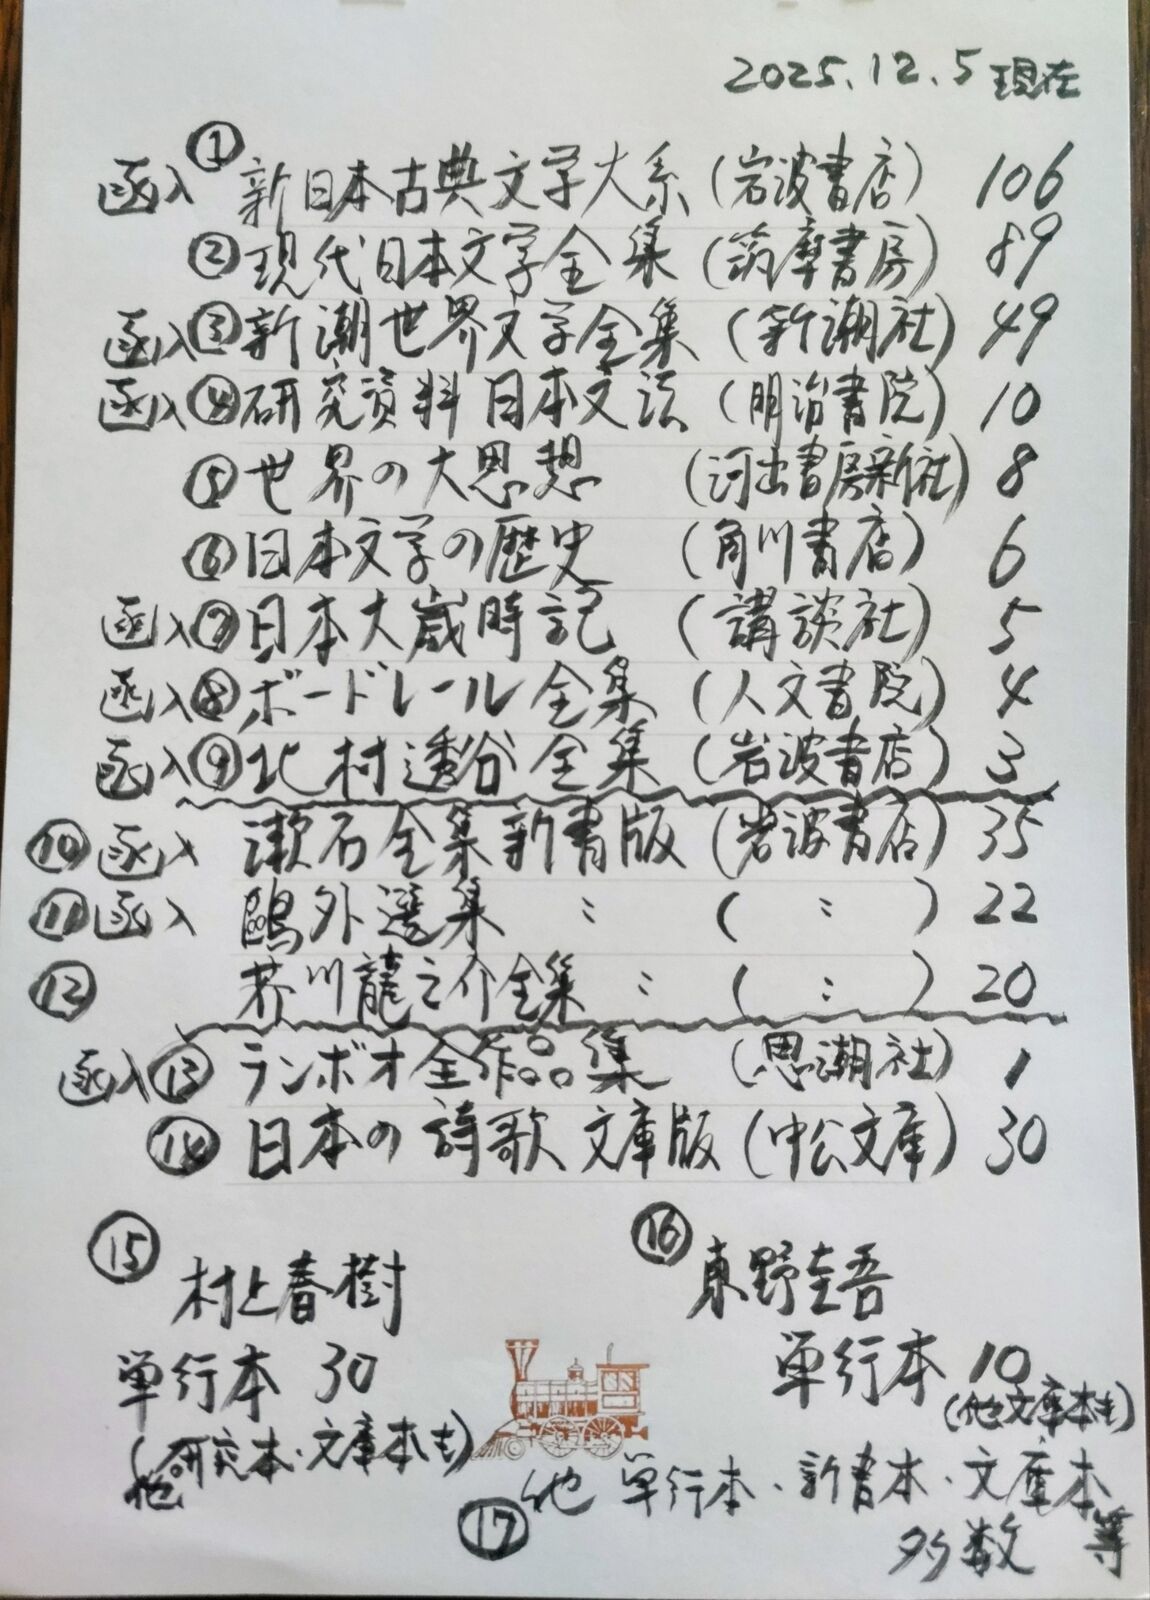 2025.12.5現在
函入 ① 新日本古典文学大系(岩波書店) 106
② 現代日本文学全集(筑摩書房) 89
函入 ③ 新潮世界文学全集(新潮社) 49
函入 ④ 研究資料日本文法(明治書院) 10
⑤ 世界の大思想(河出書房新社) 8
⑥ 日本文学の歴史(角川書店) 6
函入 ⑦ 日本大歳時記(講談社) 5
函入 ⑧ ボードレール全集(人文書院) 4
函入 ⑨ 北村透谷全集(岩波書店) 3
⑩ 函入 漱石全集新書版(岩波書店) 35
⑪ 函入 鷗外選集 〃 ( 〃 ) 22
⑫ 芥川龍之介全集 〃 ( 〃 ) 20
函入 ⑬ ランボオ全作品集(思潮社) 1
⑭ 日本の詩歌 文庫版(中公文庫) 30
⑮ 村上春樹
単行本 30
(他研究本・文庫本も)
⑯ 東野圭吾
単行本 10
(他文庫本も)
⑰ 他 単行本・新書本・文庫本等
多数